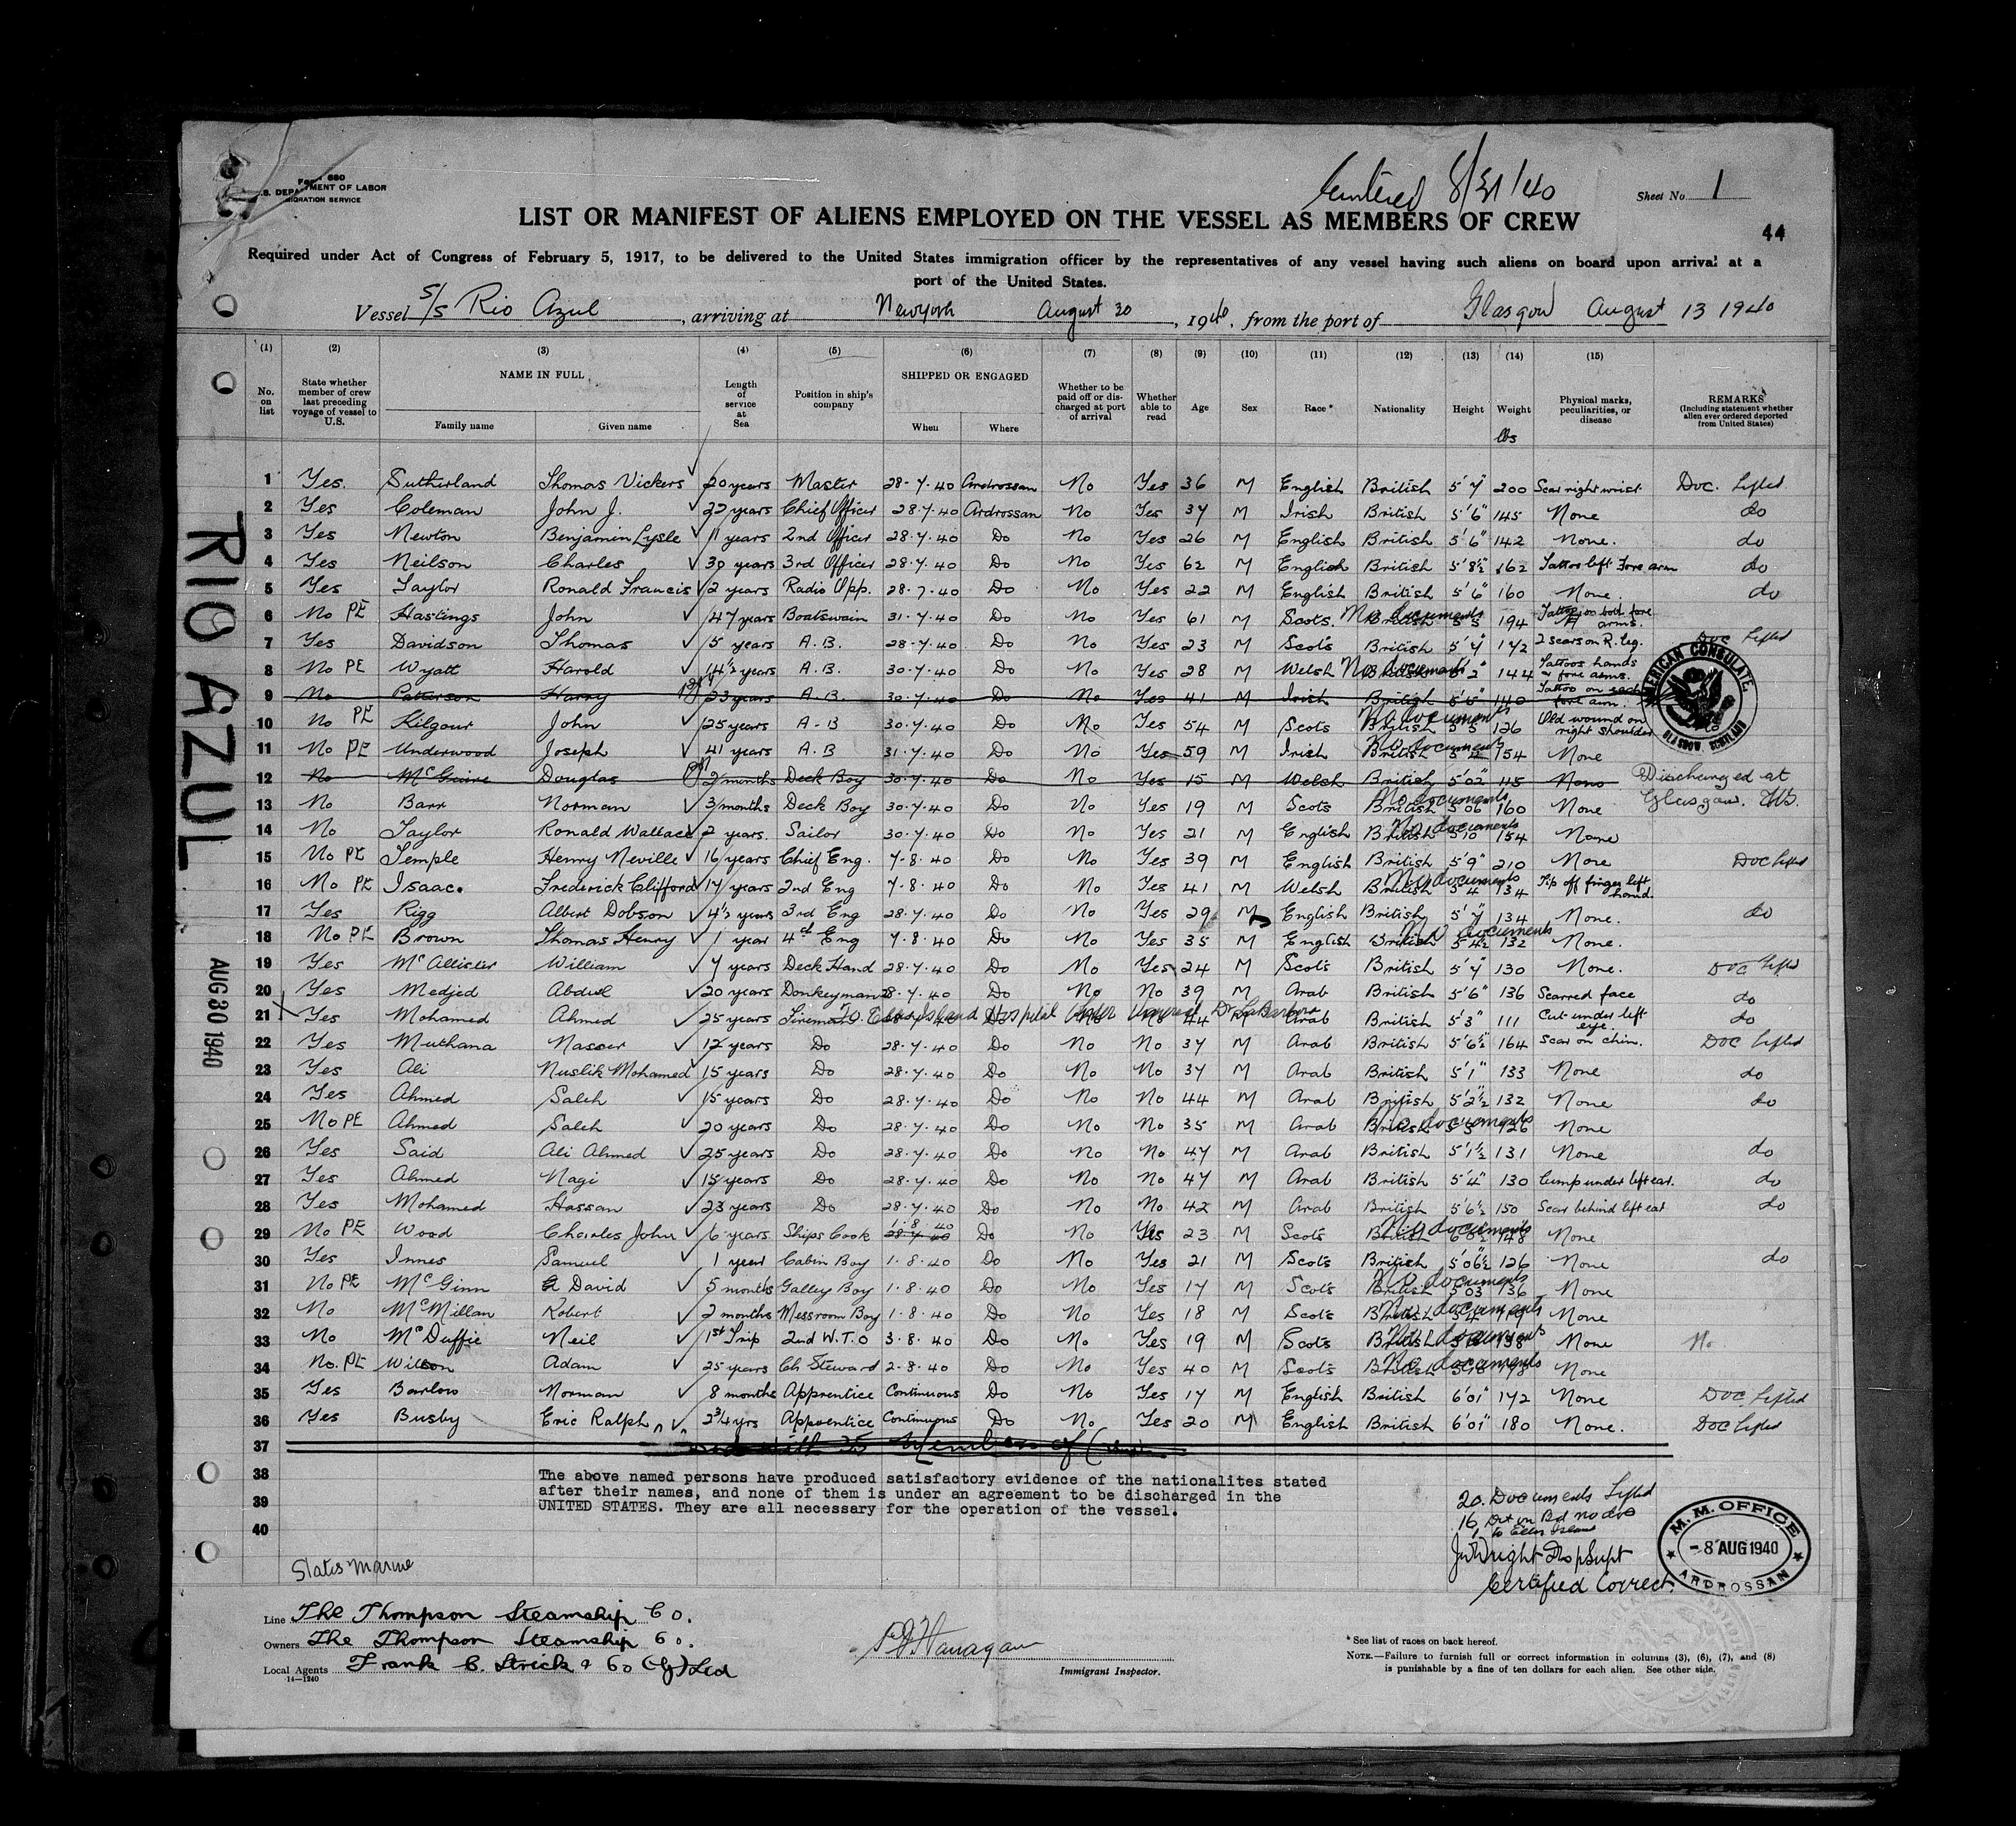 Form 680
U.S. DEPARTMENT OF LABOR
IMMIGRATION SERVICE
Entered 8/31/40
Sheet No. 1
LIST OR MANIFEST OF ALIENS EMPLOYED ON THE VESSEL AS MEMBERS OF CREW
44
Required under Act of Congress of February 5, 1917, to be delivered to the United States immigration officer by the representatives of any vessel having such aliens on board upon arrival at a
port of the United States.
Vessel S/S Rio Azul, arriving at New York August 30, 1940, from the port of Glasgow August 13 1940
(1) (2) (3) (4) (5) (6) (7) (8) (9) (10) (11) (12) (13) (14) (15)
No. on list State whether member of crew last preceding voyage of vessel to U.S. NAME IN FULL Family name Given name Length of service at Sea Position in ship's company SHIPPED OR ENGAGED When Where Whether to be paid off or discharged at port of arrival Whether able to read Age Sex Race* Nationality Height Weight lbs Physical marks, peculiarities, or disease REMARKS (Including statement whether alien ever ordered deported from United States)
1 Yes. Sutherland Thomas Vickers 20 years Master 28-7-40 Ardrossan No Yes 36 M English British 5'7" 200 Scar right wrist. Doc. Lifted
2 Yes Coleman John J. 22 years Chief Officer 28.7.40 Ardrossan No Yes 37 M Irish British 5'6" 145 None do
3 Yes Newton Benjamin Lysle 11 years 2nd Officer 28.7.40 Do No Yes 26 M English British 5'6" 142 None. do
4 Yes Neilson Charles 30 years 3rd Officer 28.7.40 Do No Yes 62 M English British 5'8½ 162 Tattoo left Fore arm do
5 Yes Taylor Ronald Francis 2 years Radio Opp. 28.7.40 Do No Yes 22 M English British 5'6" 160 None. do
6 No PE Hastings John 47 years Boatswain 31.7.40 Do No Yes 61 M Scots. British No documents 5'5 194 Tattoo on both fore arms.
7 Yes Davidson Thomas 5 years A.B. 28.7.40 Do No Yes 23 M Scots British 5'7" 172 2 scars on R. leg. Doc Lifted
8 No PE Wyatt Harold 14½ years A.B. 30.7.40 Do No Yes 28 M Welsh British No documents 144 Tattoos hands & fore arms.
9 No Patterson Harry 23 years A.B. 30.7.40 Do No Yes 41 M Irish British 5'5" 140 Tattoo on each fore arm.
10 No PE Kilgour John 25 years A-B 30.7.40 Do No Yes 54 M Scots British No documents 5'5 126 Old wound on right shoulder
11 No PE Underwood Joseph 41 years A.B 31.7.40 Do No Yes 59 M Irish British No documents 154 None
12 No Douglas 2 months Deck Boy 30.7.40 Do No Yes 15 M Welsh British 5'02" 115 None Discharged at Glasgow.
13 No Barr Norman 3 months Deck Boy 30.7.40 Do No Yes 19 M Scots British No documents 5'06 160 None
14 No Taylor Ronald Wallace 2 years. Sailor 30.7.40 Do No Yes 21 M English British No documents 5'10 154 None
15 No PE Temple Henry Neville 16 years Chief Eng. 7-8.40 Do No Yes 39 M English British 5'9" 210 None Doc lifted
16 No PE Isaac. Frederick Clifford 17 years 2nd Eng 7-8.40 Do No Yes 41 M Welsh British No documents 5'4 134 Tip off finger left hand.
17 Yes Rigg Albert Dobson 4½ years 3rd Eng 28.7.40 Do No Yes 29 M English British 5'7" 134 None. do
18 No PE Brown Thomas Henry 1 year 4th Eng 7.8.40 Do No Yes 35 M English British No documents 5'4½ 132 None.
19 Yes McAllister William 7 years Deck Hand 28.7.40 Do No Yes 24 M Scots British 5'7" 130 None. Doc Lifted
20 Yes Medjed Abdul 20 years Donkeyman 28.7.40 Do No No 39 M Arab British 5'6" 136 Scarred face do
21 Yes Mohamed Ahmed 25 years Fireman To Ellis Island Hospital Do No No 44 M Arab British 5'3" 111 Cut under left eye. do
22 Yes Muthana Nasser 12 years Do 28.7.40 Do No No 37 M Arab British 5'6½ 164 Scar on chin. Doc Lifted
23 Yes Ali Nuslik Mohamed 15 years Do 28.7.40 Do No No 37 M Arab British 5'1" 133 None do
24 Yes Ahmed Saleh 15 years Do 28.7.40 Do No No 44 M Arab British 5'2½ 132 None do
25 No PE Ahmed Saleh 20 years Do 28.7.40 Do No No 35 M Arab British No documents 5'5 126 None
26 Yes Said Ali Ahmed 25 years Do 28.7.40 Do No No 47 M Arab British 5'1½ 131 None do
27 Yes Ahmed Nagi 15 years Do 28.7.40 Do No No 47 M Arab British 5'4" 130 Lump under left ear. do
28 Yes Mohamed Hassan 23 years Do 28.7.40 Do No No 42 M Arab British 5'6½ 150 Scar behind left ear do
29 No PE Wood Charles John 6 years Ships Cook 28.7.40 1.8.40 Do No Yes 23 M Scots British No documents 148 None
30 Yes Innes Samuel 1 year Cabin Boy 1.8.40 Do No Yes 21 M Scots British 5'06½ 126 None do
31 No PE McGinn David 5 months Galley Boy 1.8.40 Do No Yes 17 M Scots British No documents 5'03 136 None
32 No McMillan Robert 2 months Messroom Boy 1.8.40 Do No Yes 18 M Scots British No documents 5'4" 119 None
33 No McDuffie Neil 1st Trip 2nd W.T.O 3.8.40 Do No Yes 19 M Scots British No documents 138 None No
34 No. PE Wilson Adam 25 years Ch Steward 2-8.40 Do No Yes 40 M Scots British No documents None
35 Yes Barlow Norman 8 months Apprentice Continuous Do No Yes 17 M English British 6'01" 172 None Doc Lifted
36 Yes Busby Eric Ralph 2¾ yrs Apprentice Continuous Do No Yes 20 M English British 6'01" 180 None. Doc lifted
37 35 Members of Crew
38
39
40
The above named persons have produced satisfactory evidence of the nationalites stated
after their names, and none of them is under an agreement to be discharged in the
UNITED STATES. They are all necessary for the operation of the vessel.
20. Documents Lifted
16 Det on Bd no docs
1 to Ellis Island
Certified Correct.
States Marine
Line The Thompson Steamship Co.
Owners The Thompson Steamship Co.
Local Agents Frank C. Strick & Co Ltd
14—1240
Immigrant Inspector.
* See list of races on back hereof.
NOTE.—Failure to furnish full or correct information in columns (3), (6), (7), and (8)
is punishable by a fine of ten dollars for each alien. See other side.
RIO AZUL
AUG 30 1940
AMERICAN CONSULATE,
GLASGOW, SCOTLAND
M. M. OFFICE
-8 AUG 1940
ARDROSSAN